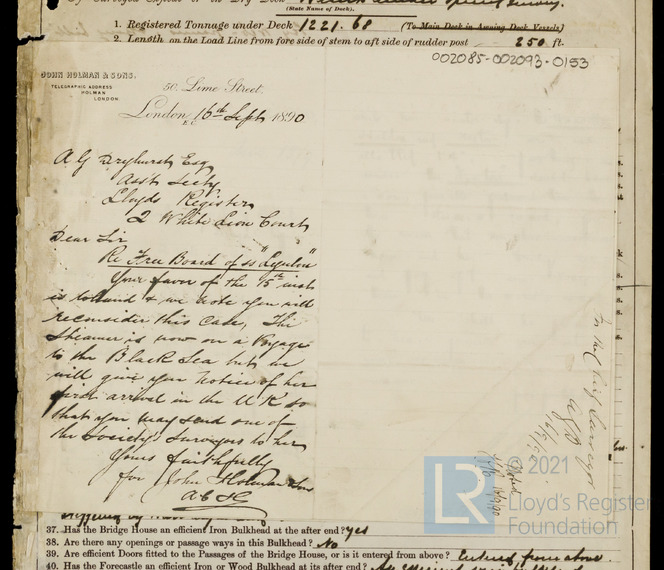 (State Name of Dock).
1. Registered Tonnage under Deck 1221.68 (To Main Deck in Awning Deck Vessels)
2. Length on the Load Line from fore side of stem to aft side of rudder post 250 ft.
002085-002093-0153
JOHN HOLMAN & SONS.
TELEGRAPHIC ADDRESS
HOLMAN
LONDON.
50, Lime Street,
London, E.C. 16th Sept 1890
A G Dryhurst Esq
Asst Secty
Lloyds Register
2 White Lion Court
Dear Sir
Re Free Board of ss "
Your favor of the 15th inst
is to hand & we note you will
reconsider this case, The
Steamer is now on a Voyage
to the Black Sea but we
will give you notice of her
first arrival in the U K so
that you may send one of
the Society's Surveyors to her
Yours faithfully
for John Holman & Sons
To the Chief Surveyor
© 2021
LR
Lloyd's Register
Foundation
37. Has the Bridge House an efficient Iron Bulkhead at the after end? Yes
38. Are there any openings or passage ways in this Bulkhead? No
39. Are efficient Doors fitted to the Passages of the Bridge House, or is it entered from above? Entered from above.
40. Has the Forecastle an efficient Iron or Wood Bulkhead at its after end?